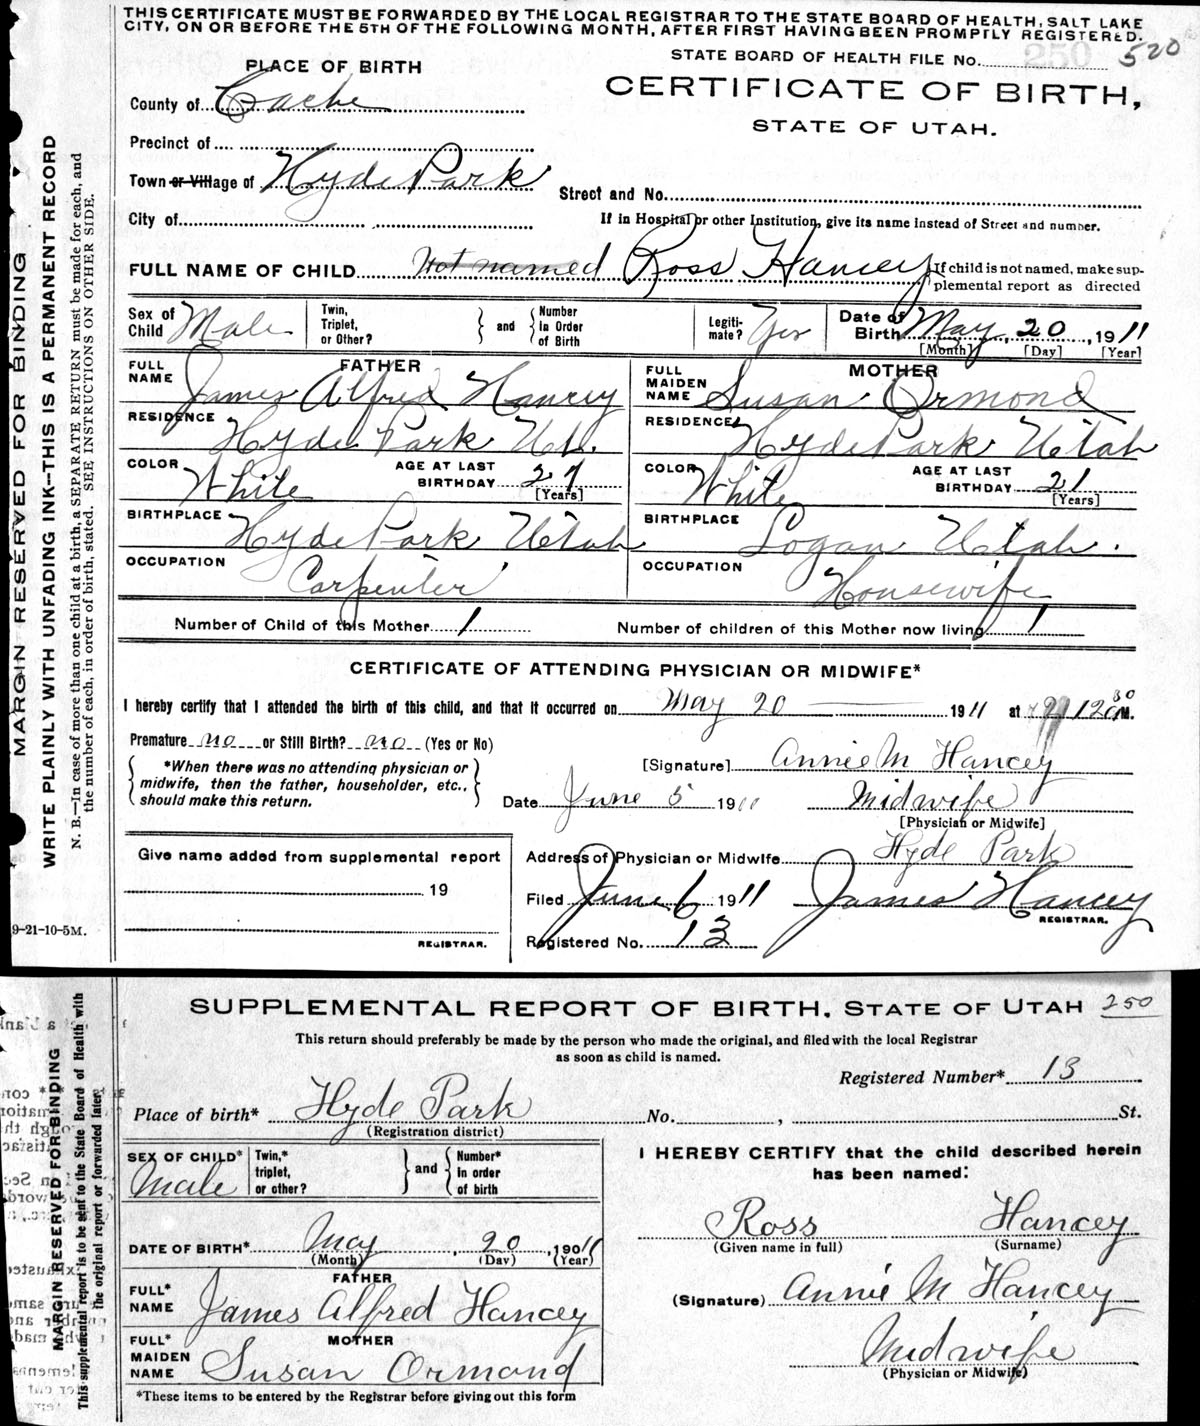 THIS CERTIFICATE MUST BE FORWARDED BY THE LOCAL REGISTRAR TO THE STATE BOARD OF HEALTH, SALT LAKE
CITY, ON OR BEFORE THE 5TH OF THE FOLLOWING MONTH, AFTER FIRST HAVING BEEN PROMPTLY REGISTERED.
STATE BOARD OF HEALTH FILE No. 250 520
PLACE OF BIRTH
CERTIFICATE OF BIRTH,
STATE OF UTAH.
County of Cache
Precinct of
Town or Village of Hyde Park
Street and No.
City of
If in Hospital or other Institution, give its name instead of Street and number.
FULL NAME OF CHILD Not named Ross Hancey
If child is not named, make sup-
plemental report as directed
Sex of Child Male
Twin, Triplet, or Other? } and { Number in Order of Birth
Legiti-mate? Yes
Date of Birth May, 20, 1911
[Month] [Day] [Year]
FATHER
FULL NAME James Alfred Hancey
RESIDENCE Hyde Park Ut.
COLOR White AGE AT LAST BIRTHDAY 27 [Years]
BIRTHPLACE Hyde Park Utah
OCCUPATION Carpenter
MOTHER
FULL MAIDEN NAME Susan Ormond
RESIDENCE Hyde Park Utah
COLOR White AGE AT LAST BIRTHDAY 21 [Years]
BIRTHPLACE Logan Utah.
OCCUPATION Housewife
Number of Child of this Mother 1 Number of children of this Mother now living 1
CERTIFICATE OF ATTENDING PHYSICIAN OR MIDWIFE*
I hereby certify that I attended the birth of this child, and that it occurred on May 20 1911 at M.
Premature no or Still Birth? no (Yes or No)
*When there was no attending physician or
midwife, then the father, householder, etc.,
should make this return.
[Signature] Annie M Hancey
Date June 5 1911 Midwife
[Physician or Midwife]
Give name added from supplemental report
19
REGISTRAR.
Address of Physician or Midwife Hyde Park
Filed June 6 1911 James Hancey
REGISTRAR.
Registered No. 13
MARGIN RESERVED FOR BINDING
WRITE PLAINLY WITH UNFADING INK—THIS IS A PERMANENT RECORD
N. B.—In case of more than one child at a birth, a SEPARATE RETURN must be made for each, and
the number of each, in order of birth, stated. SEE INSTRUCTIONS ON OTHER SIDE.
9-21-10-5M.
SUPPLEMENTAL REPORT OF BIRTH, STATE OF UTAH 250
This return should preferably be made by the person who made the original, and filed with the local Registrar
as soon as child is named.
Registered Number* 13
Place of birth* Hyde Park No. , St.
(Registration district)
SEX OF CHILD* Male
Twin,* triplet, or other? } and { Number* in order of birth
DATE OF BIRTH* May, 20, 19011
(Month) (Day) (Year)
FATHER
FULL* NAME James Alfred Hancey
MOTHER
FULL* MAIDEN NAME Susan Ormond
*These items to be entered by the Registrar before giving out this form
I HEREBY CERTIFY that the child described herein
has been named:
Ross Hancey
(Given name in full) (Surname)
(Signature) Annie M Hancey
Midwife
(Physician or Midwife)
MARGIN RESERVED FOR BINDING
This supplemental report is to be sent to the State Board of Health with
the original report or forwarded later.